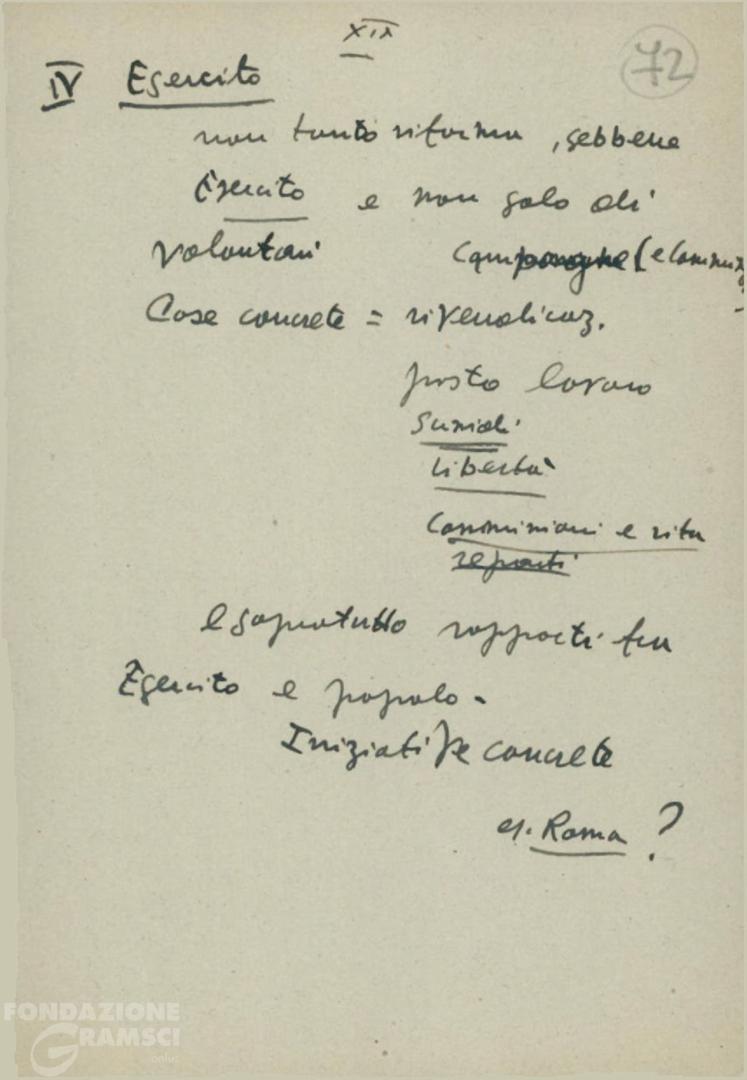 XIX
72
IV Esercito
non tanto riforma, sebbene
Esercito e non solo di
volontari (e commis
Cose concrete = rivendicaz.
posto lavoro
Sussidi
libertà
Commissioni e vita
reparti
e sopratutto rapporti fra
Esercito e popolo -
Iniziative concrete
es. Roma ?
FONDAZIONE
GRAMSCI
onlus